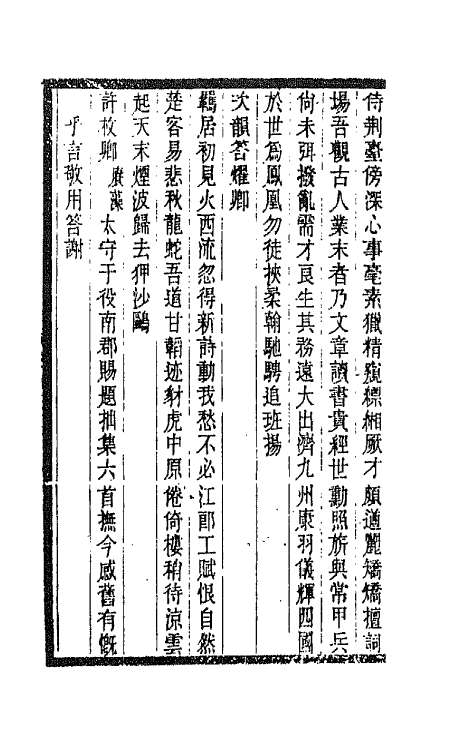 侍荆臺傍深心事毫素獵精窺縹緗厥才頗遒麗矯矯擅詞
場吾觀古人業末者乃文章讀書貴經世勳照旂與常甲兵
尙未弭撥亂需才良生其務遠大出濟九州康羽儀輝四國
於世爲鳳凰勿徒挾柔翰馳騁追班揚
次韻答耀卿
羈居初見火西流忽得新詩動我愁不必江郎工賦恨自然
楚客易悲秋龍蛇吾道甘韜迹豺虎中原倦倚樓稍待涼雲
起天末煙波歸去狎沙鷗
許枚卿賡藻太守于役南郡賜題拙集六首撫今感舊有慨
乎言敬用答謝